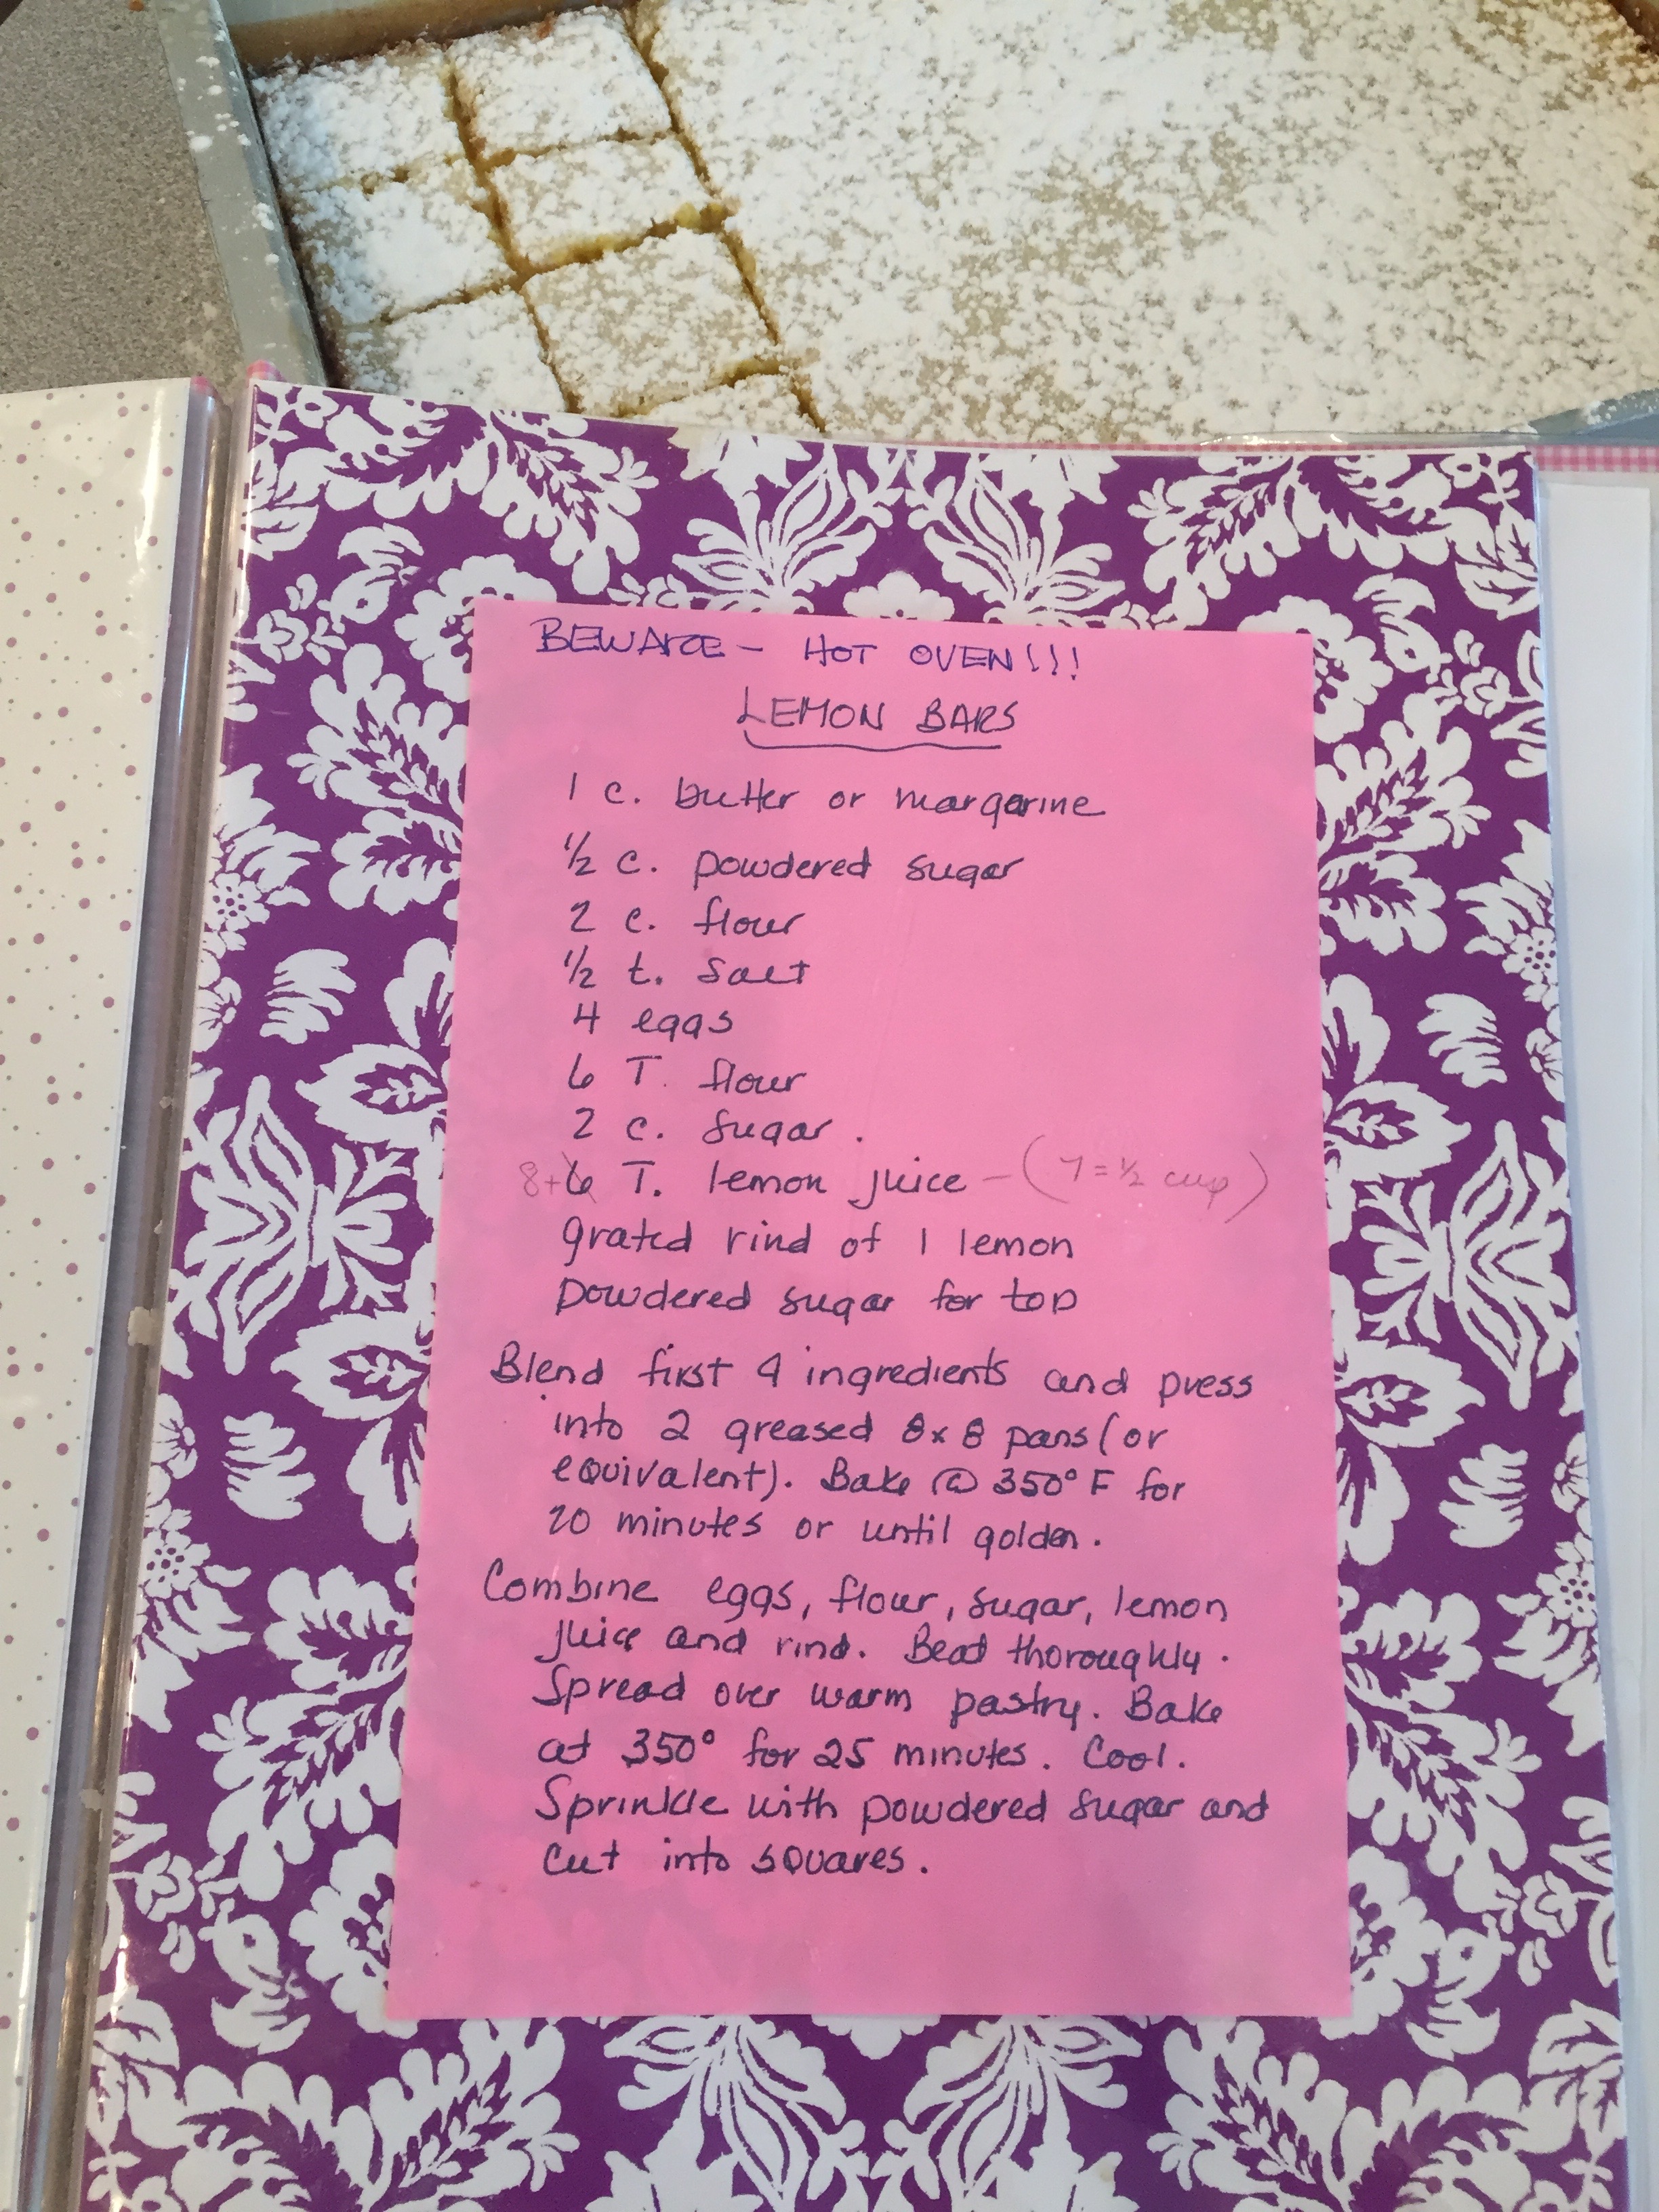 BEWARE - HOT OVEN!!!
LEMON BARS
1 c. butter or margarine
½ c. powdered sugar
2 c. flour
½ t. salt
4 eggs
6 T. flour
2 c. sugar.
8+ 6 T. lemon juice - (7 = ½ cup)
grated rind of 1 lemon
powdered sugar for top
Blend first 4 ingredients and press
into 2 greased 8x8 pans (or
equivalent). Bake @ 350° F for
20 minutes or until golden.
Combine eggs, flour, sugar, lemon
juice and rind. Beat thoroughly.
Spread over warm pastry. Bake
at 350° for 25 minutes. Cool.
Sprinkle with powdered sugar and
cut into squares.